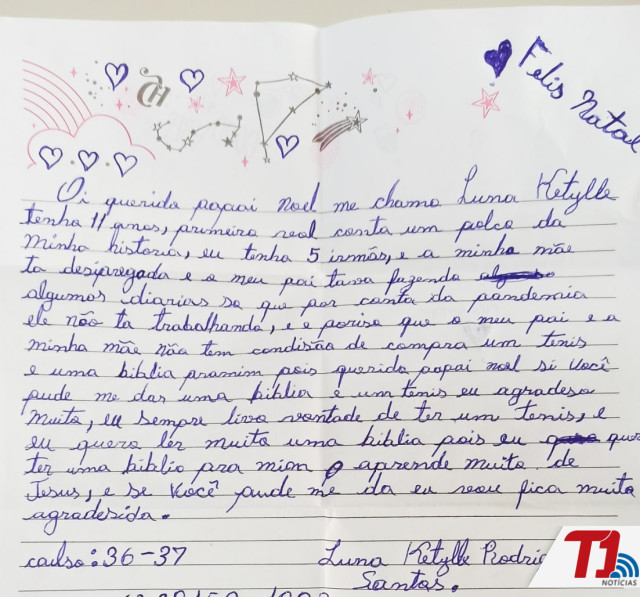 Felis Natal
Oi querido papai noel me chamo Luna Ketylle
tenho 11 anos, primeiro vou conta um poko da
minha historia, eu tenho 5 irmãs, e a minha mãe
ta desipregada e o meu pai tava fazendo
algumas diarias so que por conta da pandemia
ele não ta trabalhando, e e poriso que o meu pai e a
minha mãe não tem condisão de compra um tenis
e uma biblia pramim pois querido papai noel si você
pude me das uma biblia e um tenis eu agradeso
muito, eu sempre tive vontade de ter um tenis, e
eu quero ler muito uma biblia pois eu quero
ter uma biblia pra mim e aprende muito de
Jesus, e se você pude me da eu vou fica muito
agradesida.
caulso: 36-37
Luna Ketylle Rodri
Santos.
T1
NOTÍCIAS